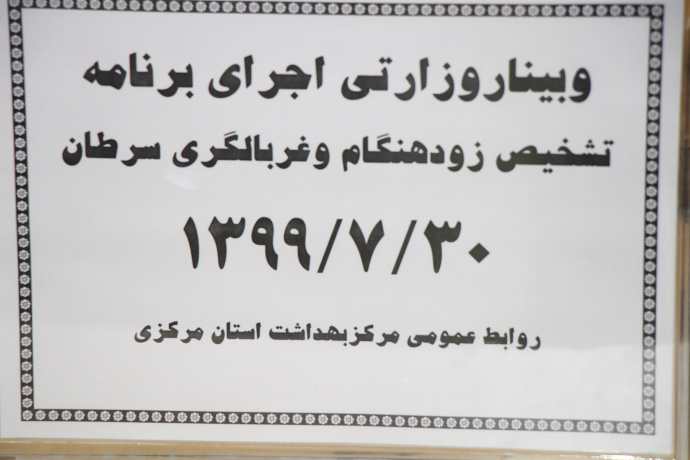 وبیناروزارتی اجرای برنامه
تشخیص زودهنگام وغربالگری سرطان
۱۳۹۹/۷/۳۰
روابط عمومی مرکزبهداشت استان مرکزی